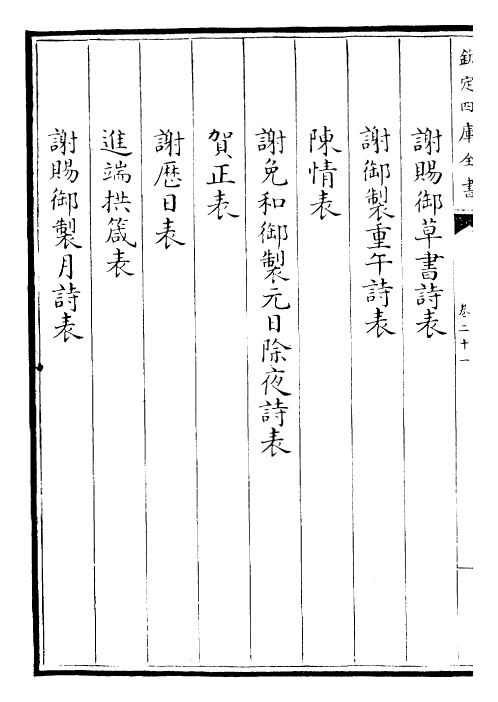 欽定四庫全書
卷二十一
謝賜御草書詩表
謝御製重午詩表
陳情表
謝免和御製元日除夜詩表
賀正表
謝歷日表
進端拱箴表
謝賜御製月詩表